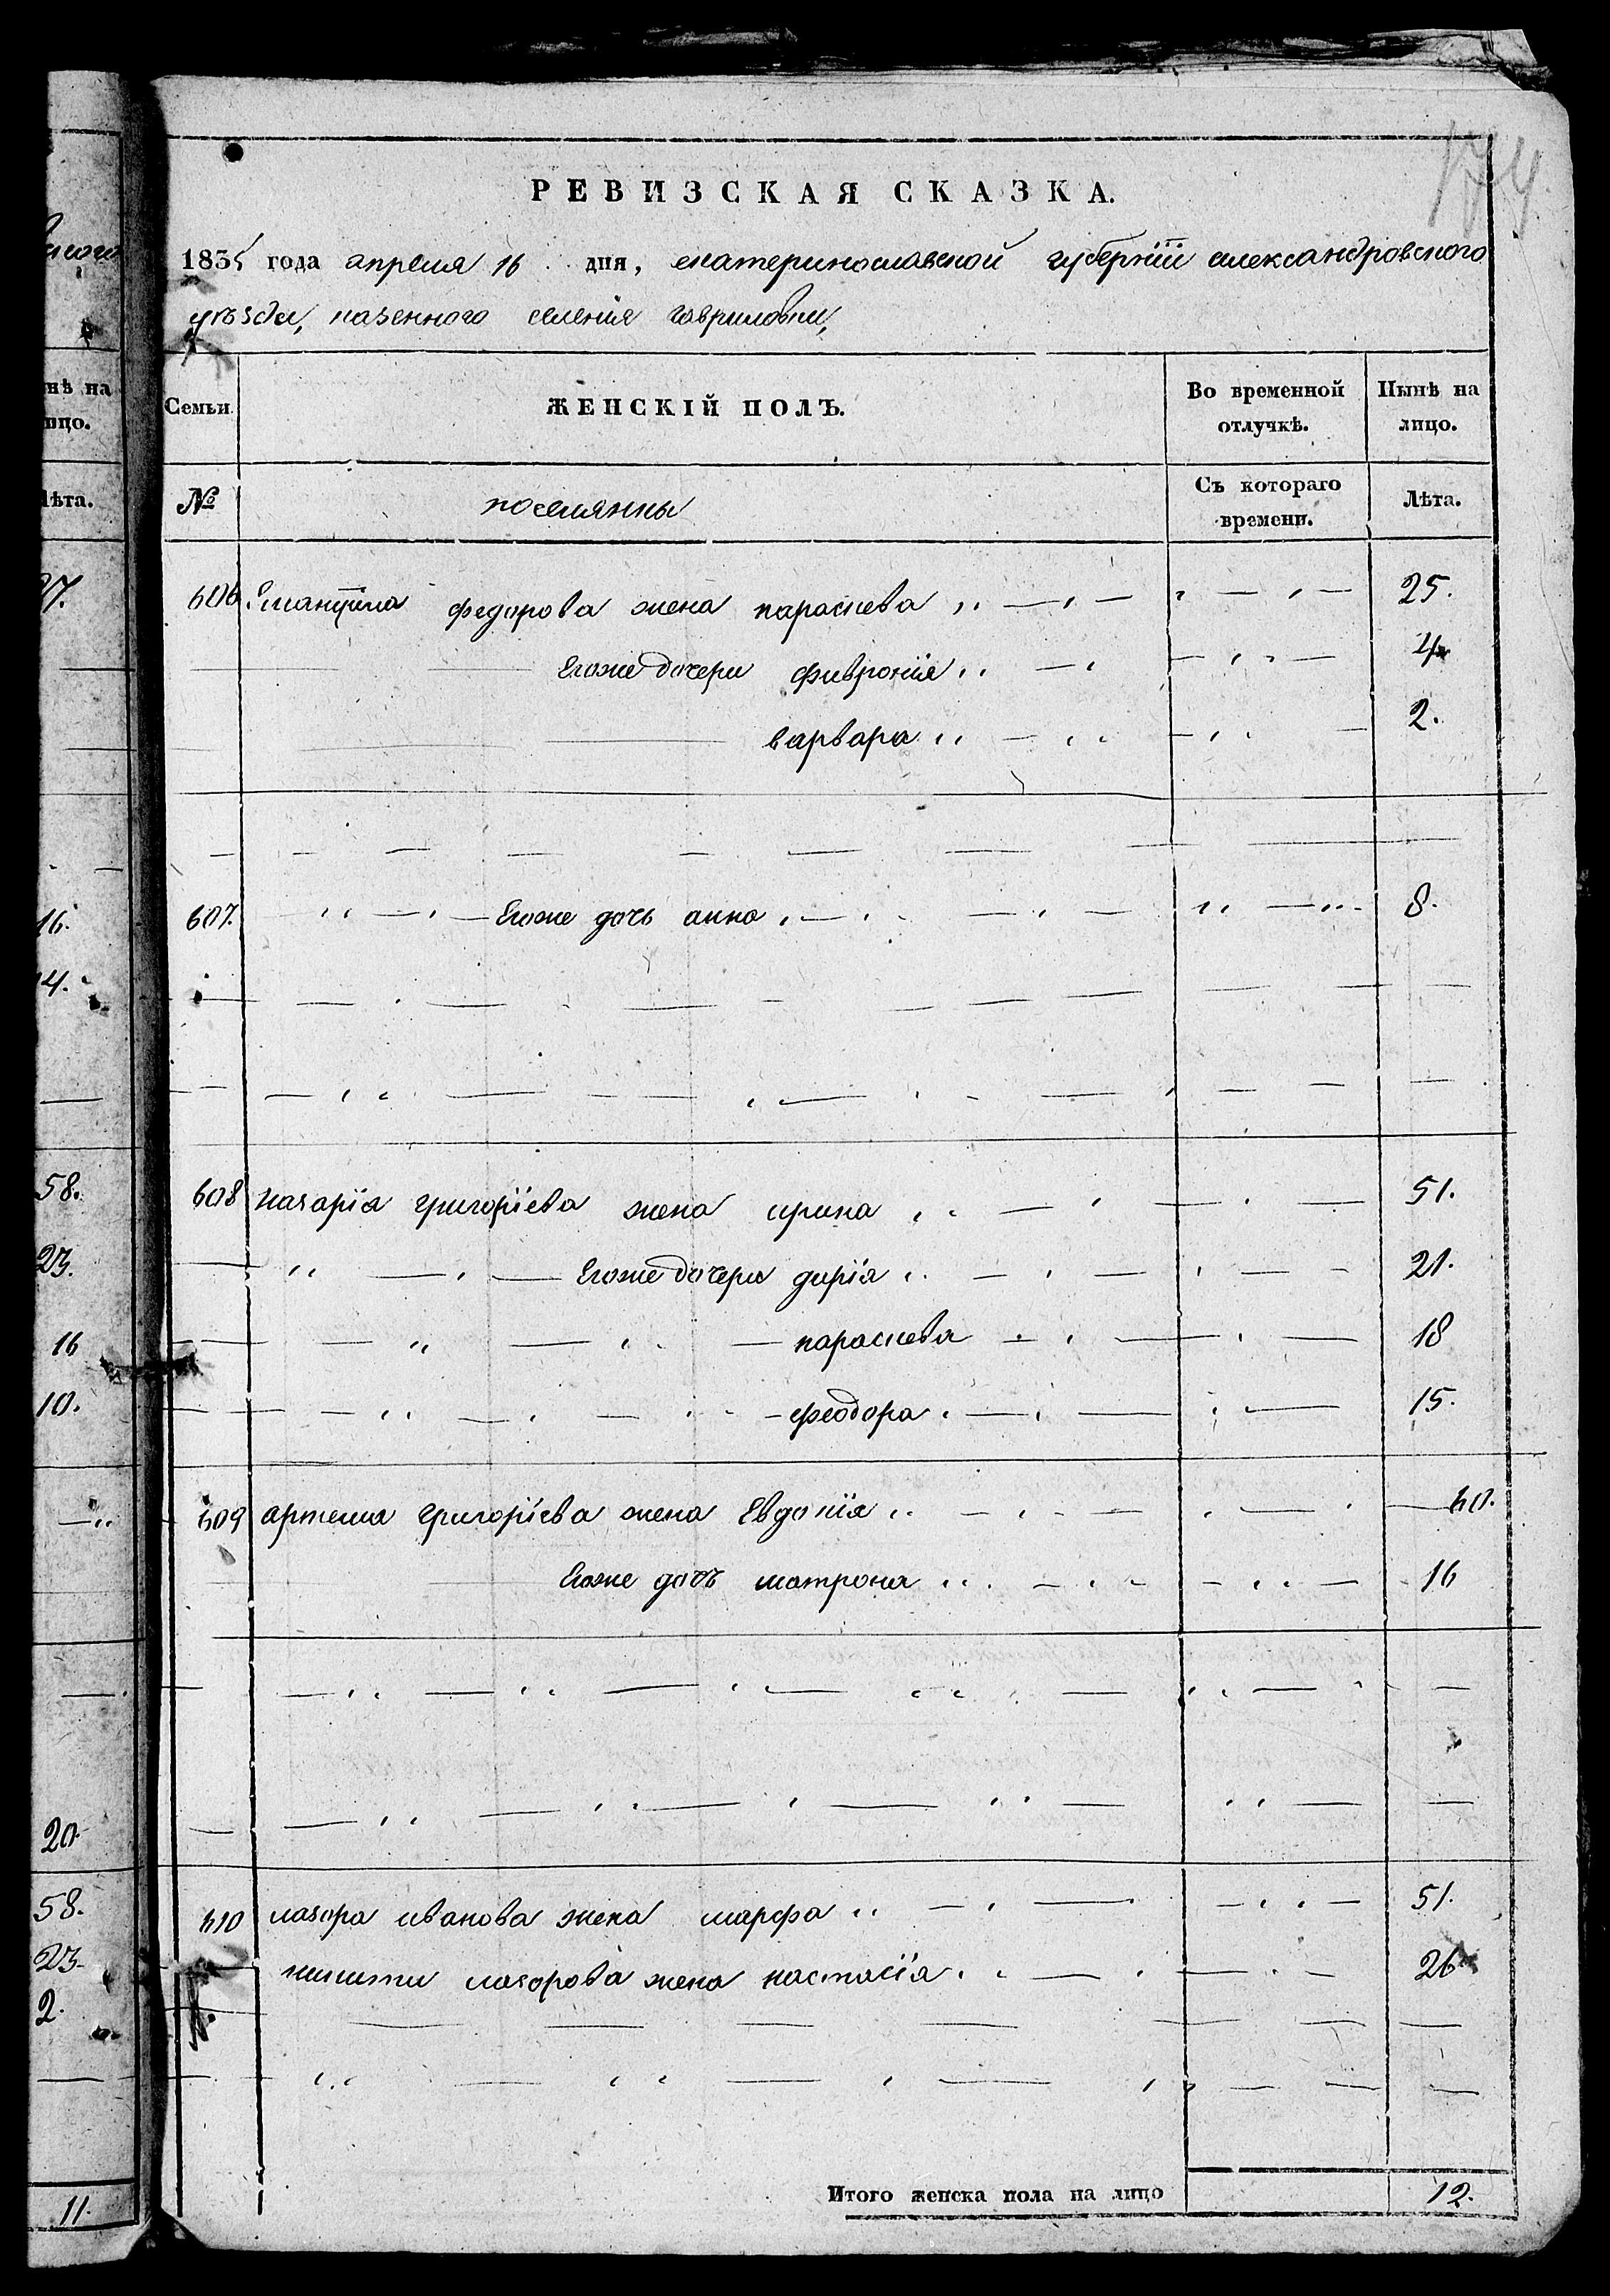 174
РЕВИЗСКАЯ СКАЗКА.
1835 года апреля 16 дня, екатеринославской губерніи александровского
уѣзда, казенного селенія гавриловки,
Семьи. ЖЕНСКІЙ ПОЛЪ. Во временной отлучкѣ. Нынѣ на лицо.
№ поселянны Съ котораго времени. Лѣта.
606. федорова жена параскева 25.
Егоже дочери фивронія 4
варвара 2.
607. Егоже дочь анна 8.
608 назарія григоріева жена ирина 51.
Егоже дочери дарія 21.
параскева 18
феодора 15.
609 артема григоріева жена Евдокія 60.
Егоже дочъ матрона 16
610 лазора иванова жена марфа 51.
никиты лазорова жена настасія 26
Итого женска пола на лицо 12.
нѣ на
ицо.
ѣта.
27.
16.
14.
58.
23.
16
10.
20
58.
23
2.
11.